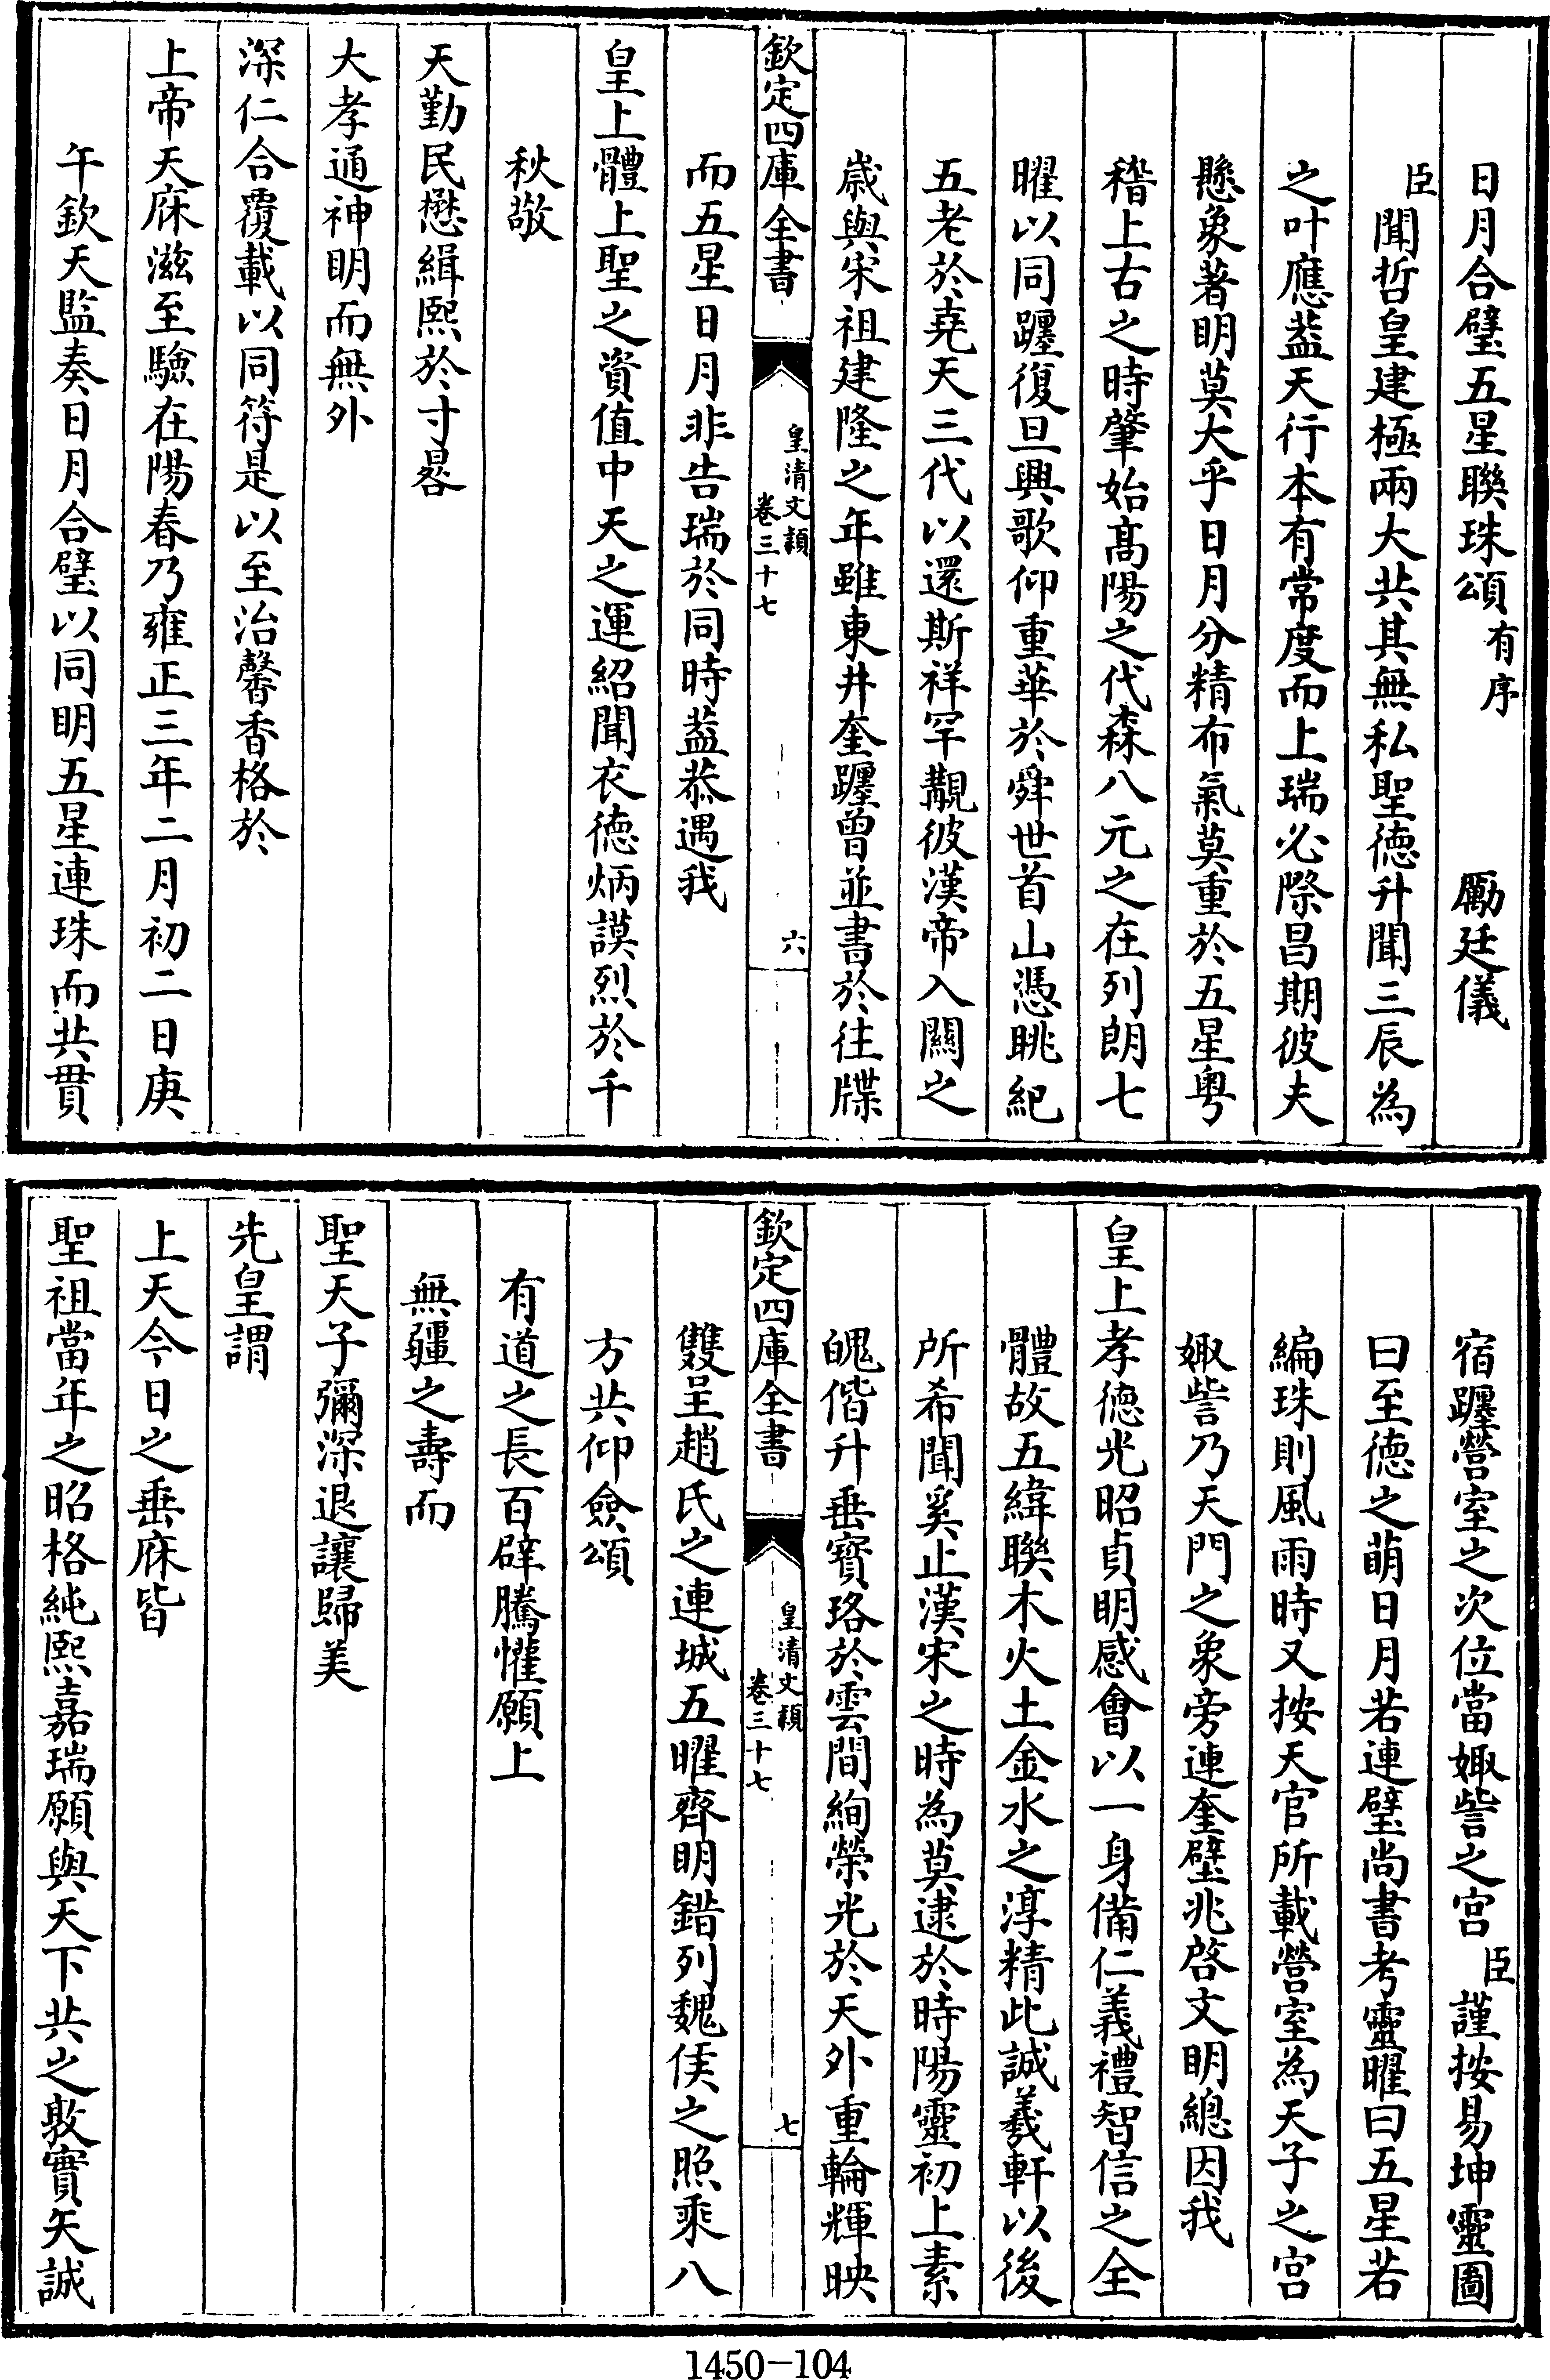 日月合璧五星聯珠頌有序 勵廷儀
臣聞哲皇建極兩大共其無私聖徳升聞三辰為
之叶應葢天行本有常度而上瑞必際昌期彼夫
懸象著明莫大乎日月分精布氣莫重於五星粤
稽上古之時肇始髙陽之代森八元之在列朗七
曜以同躔復旦興歌仰重華於舜世首山凴眺紀
五老於堯天三代以還斯祥罕覯彼漢帝入闗之
歳與宋祖建隆之年雖東井奎躔曾並書於往牒
欽定四庫全書 皇清文頴 卷三十七 六
而五星日月非告瑞於同時葢恭遇我
皇上體上聖之資值中天之運紹聞衣徳炳謨烈於千
秋敬
天勤民懋緝熙於寸晷
大孝通神明而無外
深仁合覆載以同符是以至治馨香格於
上帝天庥滋至驗在陽春乃雍正三年二月初二日庚
午欽天監奏日月合璧以同明五星連珠而共貫
宿躔營室之次位當娵訾之宫臣謹按易坤靈圖
曰至徳之萌日月若連璧尚書考靈曜曰五星若
編珠則風雨時又按天官所載營室為天子之宫
娵訾乃天門之象旁連奎壁兆啓文明總因我
皇上孝徳光昭貞明感會以一身備仁義禮智信之全
體故五緯聯木火土金水之淳精此誠羲軒以後
所希聞奚止漢宋之時為莫逮於時陽靈初上素
魄偕升垂寳珞於雲間絢榮光於天外重輪輝映
欽定四庫全書 皇清文頴 卷三十七 七
雙呈趙氏之連城五曜齊明錯列魏侯之照乘八
方共仰僉頌
有道之長百辟騰懽願上
無疆之壽而
聖天子彌深退讓歸美
先皇謂
上天今日之垂庥皆
聖祖當年之昭格純熙嘉瑞願與天下共之敦實矢誠
1450-104